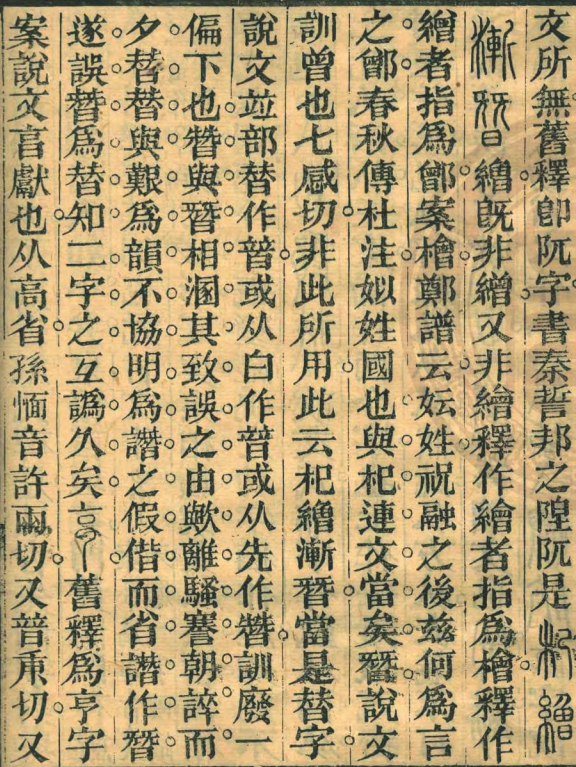 文所無舊釋卽阮字書秦誓邦之隉阮是杞繒
漸朁繒旣非繒又非繪釋作繪者指爲檜釋作
繒者指爲鄫案檜鄭譜云妘姓祝融之後茲何爲言
之鄫春秋傳杜注姒姓國也與杞連文當矣朁說文
訓曾也七感切非此所用此云杞繒漸朁當是替字
說文竝部替作暜或从曰作朁或从兟作替訓廢一
偏下也替與朁相溷其致誤之由歟離騷謇朝誶而
夕替替與艱爲韻不協明爲譖之假借而省譖作朁
遂誤朁爲替知二字之互譌久矣舊釋爲亨字
案說文言獻也从高省孫愐音許兩切又普庚切又